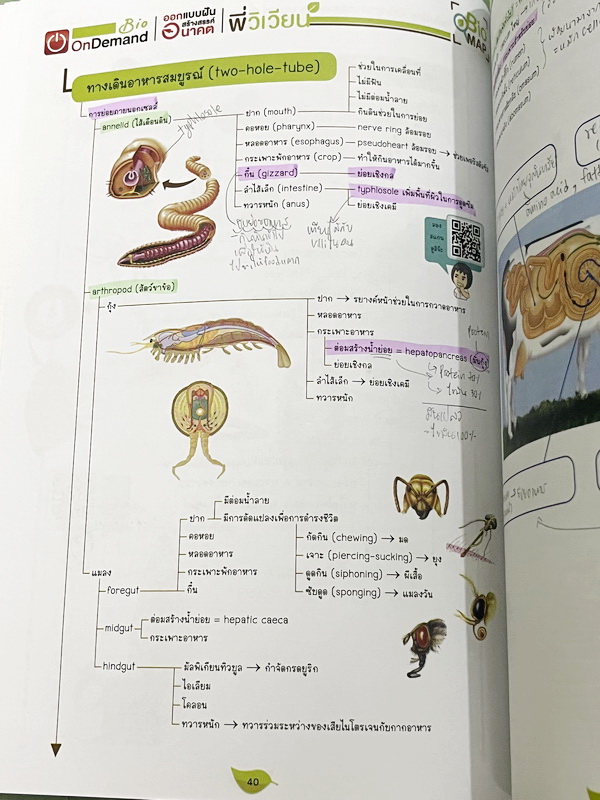 Bio
OnDemand
ออกแบบฝัน
สร้างสรรค์
อนาคต
พี่วิเวียน
Bio
MAP
ทางเดินอาหารสมบูรณ์ (two-hole-tube)
การย่อยภายนอกเซลล์
annelid (ไส้เดือนดิน)
typhlosole
ปาก (mouth)
ช่วยในการเคลื่อนที่
ไม่มีฟัน
ไม่มีต่อมน้ำลาย
กินดินช่วยในการย่อย
คอหอย (pharynx)
nerve ring ล้อมรอบ
หลอดอาหาร (esophagus)
pseudoheart ล้อมรอบ →
กระเพาะพักอาหาร (crop)
ทำให้กินอาหารได้มากขึ้น
กึ๋น (gizzard)
ย่อยเชิงกล
ลำไส้เล็ก (intestine)
typhlosole เพิ่มพื้นที่ผิวในการดูดซึม
ทวารหนัก (anus)
ย่อยเชิงเคมี
ลอง
สแกน
ดูสิน้ะ
arthropod (สัตว์ขาข้อ)
กุ้ง
ปาก → รยางค์หน้าช่วยในการกวาดอาหาร
หลอดอาหาร
กระเพาะอาหาร
ต่อมสร้างน้ำย่อย = hepatopancreas (มันกุ้ง)
ย่อยเชิงกล
protein 70%
ลำไส้เล็ก → ย่อยเชิงเคมี
ไขมัน 30%
ทวารหนัก
แมลง
foregut
ปาก
มีต่อมน้ำลาย
มีการดัดแปลงเพื่อการดำรงชีวิต
กัดกิน (chewing) → มด
เจาะ (piercing-sucking) → ยุง
ดูดกิน (siphoning) → ผีเสื้อ
ซับดูด (sponging) → แมลงวัน
คอหอย
หลอดอาหาร
กระเพาะพักอาหาร
กึ๋น
midgut
ต่อมสร้างน้ำย่อย = hepatic caeca
กระเพาะอาหาร
hindgut
มัลพิเกียนทิวบูล → กำจัดกรดยูริก
ไอเลียม
โคลอน
ทวารหนัก → ทวารร่วมระหว่างของเสียไนโตรเจนกับกากอาหาร
40
(rumen)
(reticulum)
(omasum)
(abomasum)
amino acid,